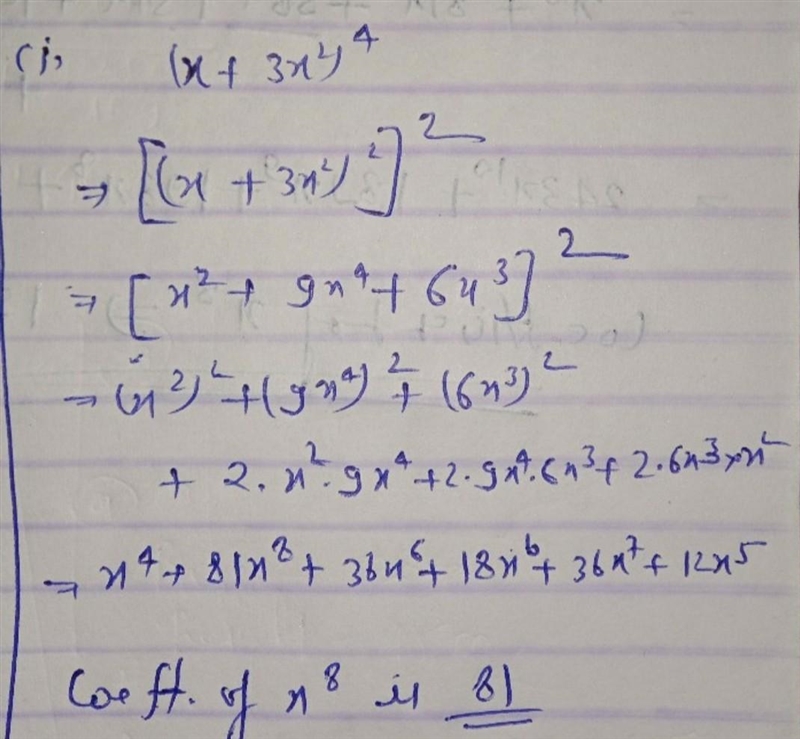 (i), (x + 3x²)⁴
⇒ [(x + 3x²)²]²
⇒ [x² + 9x⁴ + 6x³]²
⇒ (x²)² + (9x⁴)² + (6x³)²
+ 2. x². 9x⁴ + 2. 9x⁴. 6x³ + 2. 6x³ × x²
⇒ x⁴ + 81x⁸ + 36x⁶ + 18x⁶ + 36x⁷ + 12x⁵
Coefft. of x⁸ is 81